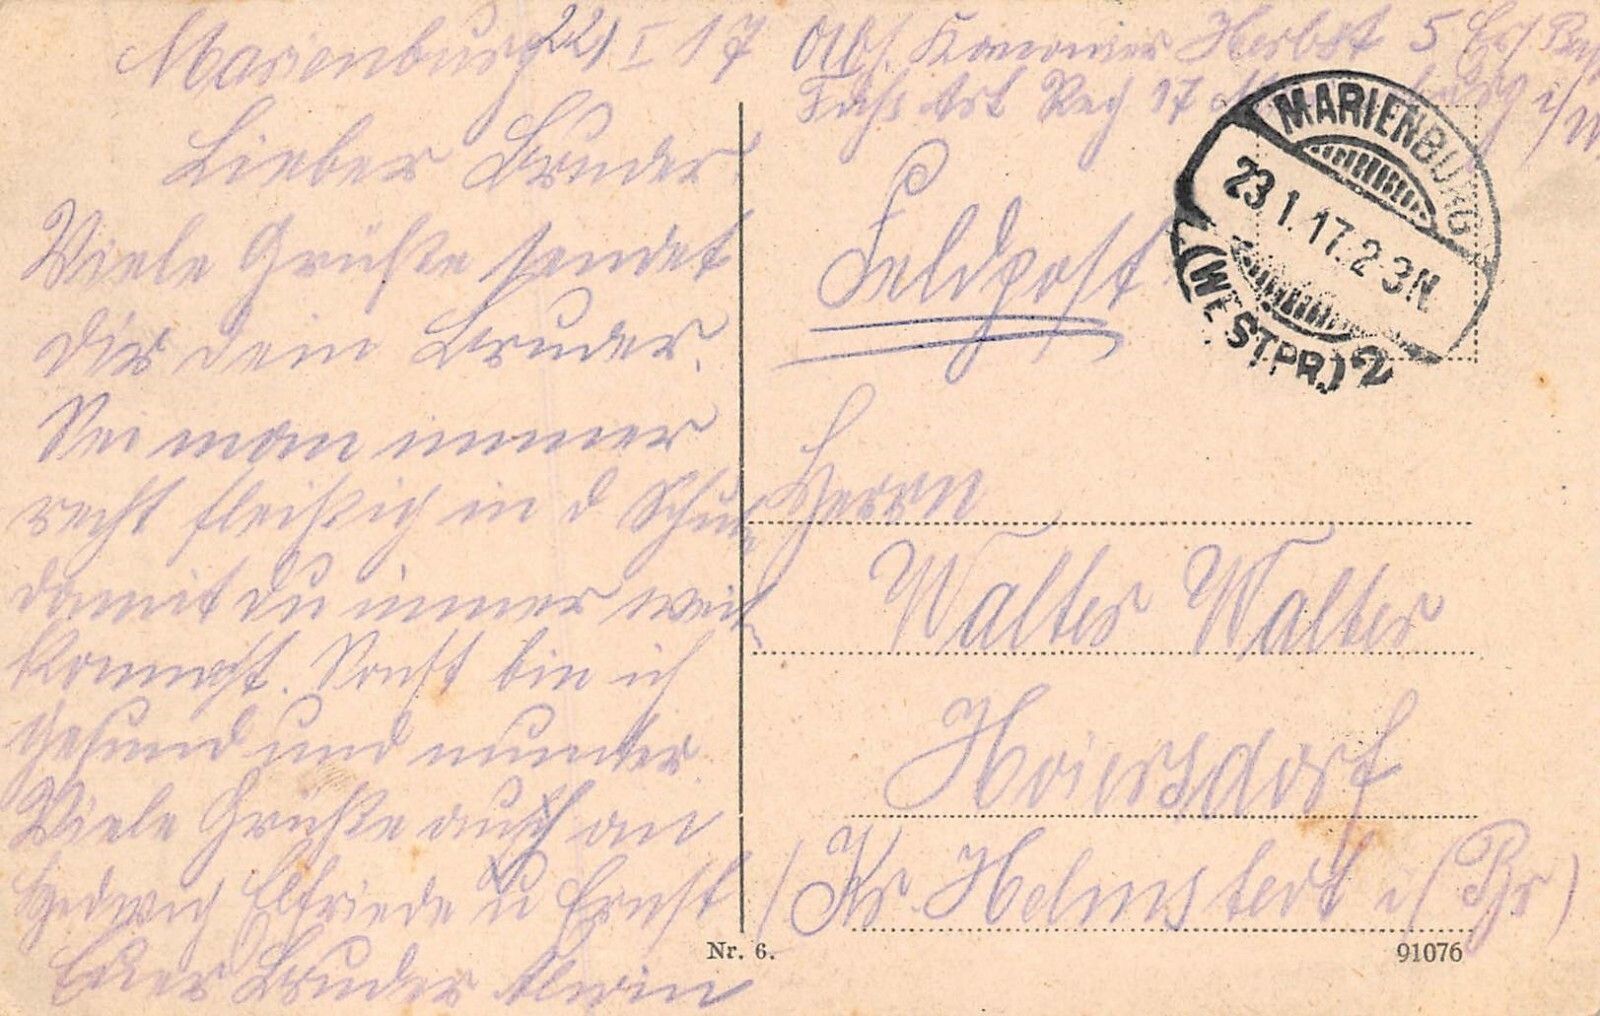 Marienburg 22/ I 17
Lieber Bruder!
Viele Grüße sendet
dir dein Bruder.
Sei man immer
recht fleißig in d Schule
damit du immer weit
kommst. Sonst bin ich
gesund und munter.
Viele Grüße auch an
Hedwig Elfriede u Ernst
Euer Bruder Alwin
Abs. Kanonier Herbst 5 Ers
Art Reg 17
Feldpost
MARIENBURG
23.1.17.2-3N.
(WESTPR.) 2
Herrn
Walter Walter
Hoiersdorf
(Kr. Helmstedt i/Br)
Nr. 6.
91076